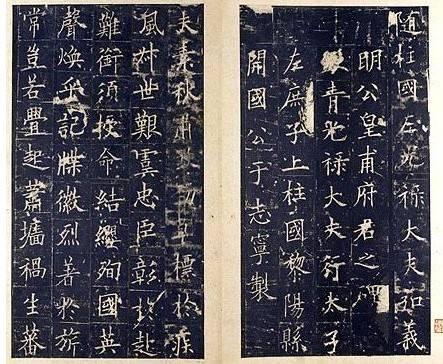 随柱國左光祿大夫弘義
明公皇甫府君之碑
青光祿大夫行太子
左庶子上柱國黎陽縣
開國公于志寧製
夫素秋肅勁標於疾
風叔世艱虞忠臣彰於赴
難銜須授命結纓殉國英
聲煥乎記牒徽烈著於旂
常豈若舋起蕭墻禍生蕃